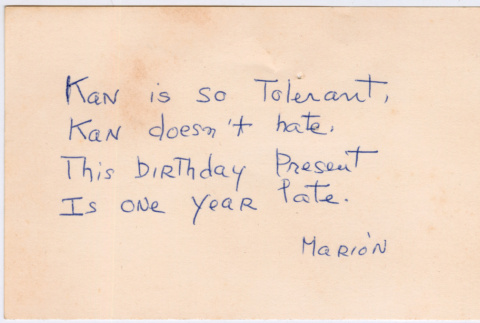 Kan is so Tolerant,
Kan doesn't hate.
This Birthday Present
Is one year late.
Marion